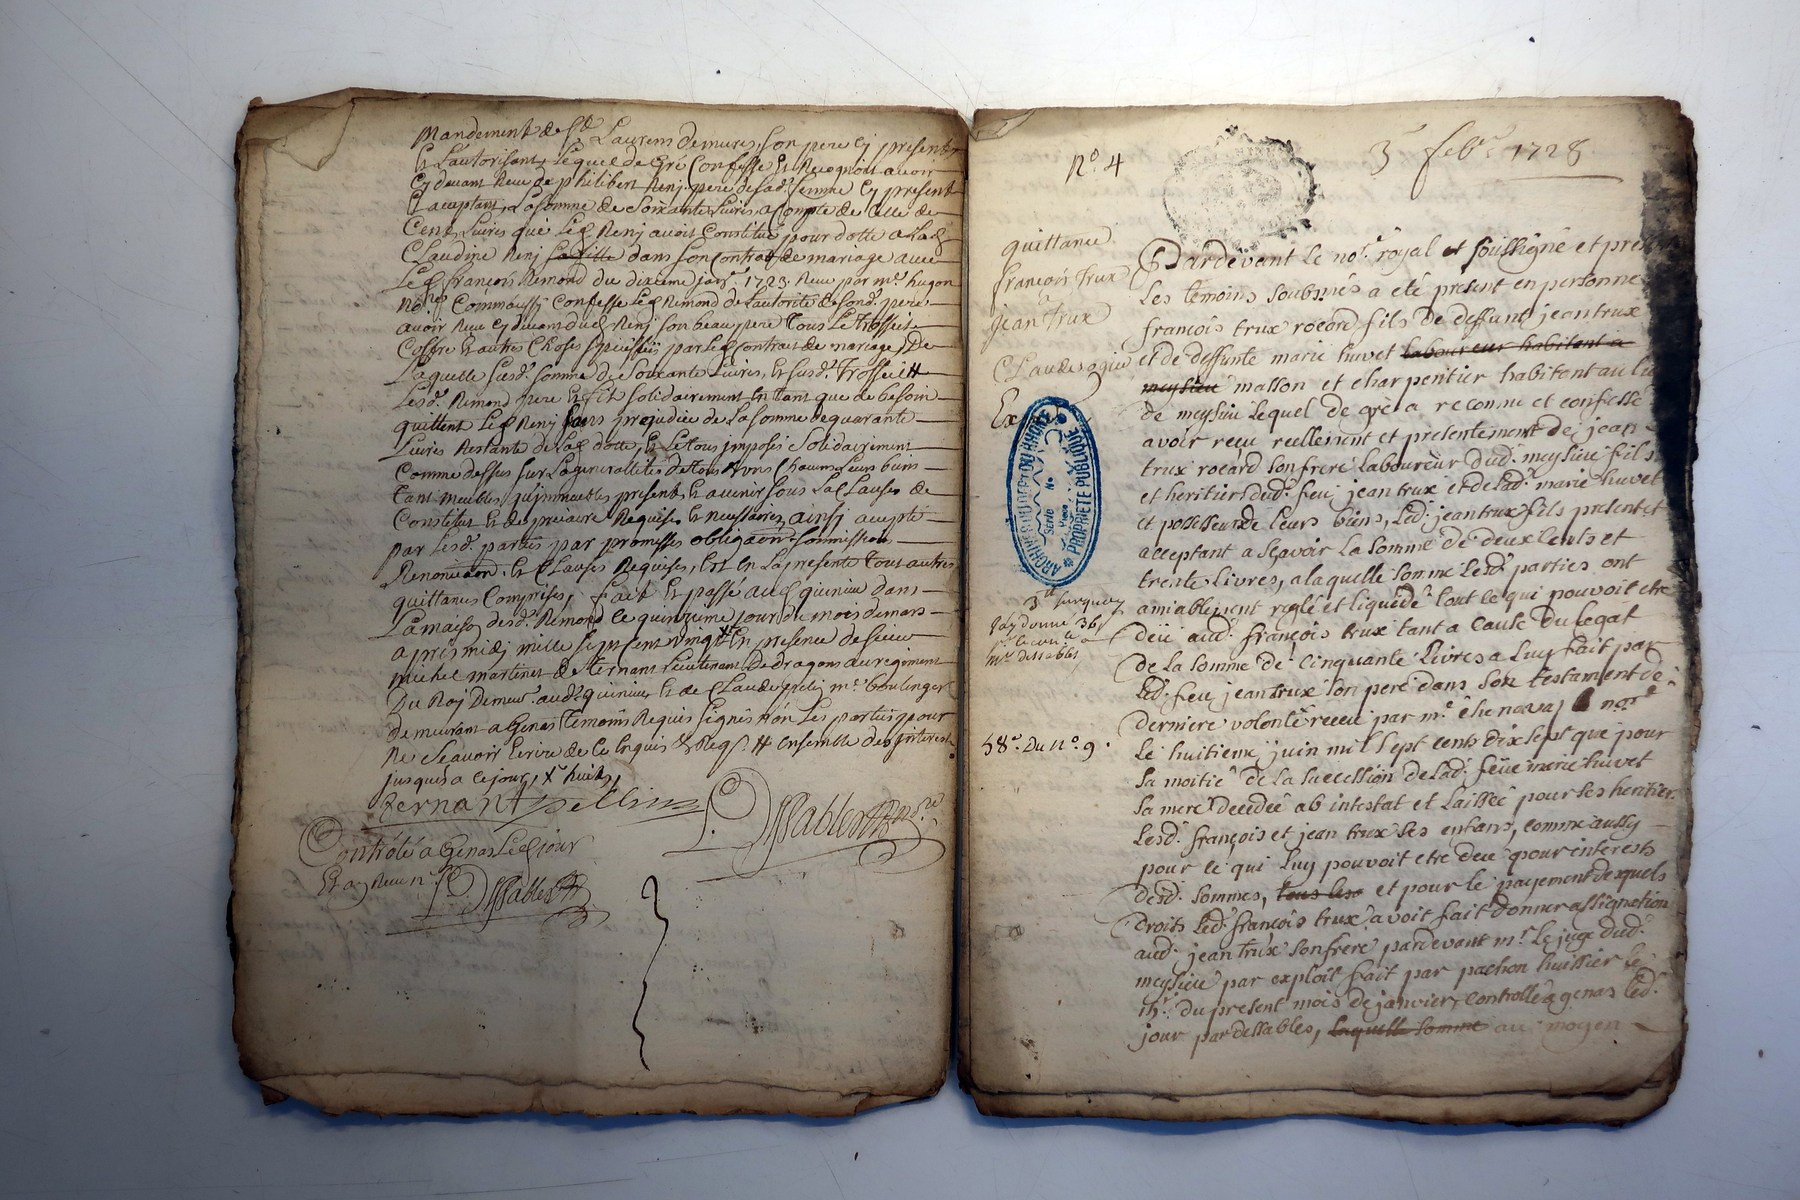 Mandement de sd. Laurens demures, son pere cy present
Et Lautorisant, Lequel de Gré Confesse Et Recognoit avoir
Cy devant Receu de philibert Renj pere de sad. femme Cy present
Et acceptant, La somme de Soixante Livres, a Compte de Celle de
Cent Livres que Led. Renj avoit Constitué pour dotte a Lad.
Claudine Renj sa fille dans son Contrat de mariage avec
Led. françois Remond du dixieme janr. 1723. Receu par mr. hugon
Nore. Comm' aussi Confesse Led. Remond de Lautorité de sond. pere
avoir Receu Cy devant dud. Renj son beau pere Tous Le Trosseit
Coffre Et autres Choses speciffiés par Led. Contrait de mariage, De
Laquelle susd. somme de soixante Livres, Et susd. Trosseitt
Lesd. Remond pere Et fils solidairement En tant que de besoin
quittent Led. Renj sans prejudice de La somme de quarante
Livres Restante de Lad. dotte, Et Le tous imposés solidairement
Comme dessus sur La generallité de tous Et uns Chacuns Leurs biens
tant meubles, qu'immeubles presents Et avenir sous La Clauses de
Constitut Et de precaire Requises Et necessaires, ainsi accepté
par Lesd. parties par promesses obligaon. soumission
Renonciaon. Et Clauses Requises, Est En La presente tous autres
quittances Comprises, fait Et passé aud. quinieu dans
La maison desd. Remond Le quinzieme jour du mois de mars
apres midj mille sept cent vingt En presence de sieur
michel martinet de ternant Lieutenant de dragons au regiment
Du Roy Demeur. aud. quinieu Et de Claude mr. boulenger
demeurant a Genas temoins Requis signés non Les parties pour
Ne Scavoir Ecrire de Ce Enquis & Reqs. # ensemble des interest
jusques a ce jour, X huit,
Ternant pellin Dessables nore.
Controlé a Genas Led. jour
Et ay Receu Dessables
No. 4
3 febr. 1728
quittance
françois Trux
a
Jean Trux
Claude
Ex
Pardevant le nore. royal et soussigné et present
Les temoins soubsnés a eté present en personne
françois trux rocard fils de deffunt jean trux
et de deffunte marie huvet laboureur habitant a
meysieu masson et charpentier habitant au lieu
de meysieu Lequel de grè a reconnu et confessé
avoir reçu reellement et presentement de jean
trux rocard son frere Laboureur dud. meysieu fils
et heritier dud. feu jean trux et de lad. marie huvet
et possesseur de leurs biens, Led. jean trux fils present et
acceptant a sçavoir La somme de deux cents et
trente Livres, a laquelle somme Lesd. parties ont
amiablement reglé et liquidé tout ce qui pouvoit etre
deü aud. françois trux tant a cause du legat
de la somme de cinquante Livres a Luy fait par
Led. feu jean trux son pere dans son testament de
derniere volonté receu par mr. chenavaj nore
Le huitieme juin mil sept cents dix sept que pour
Sa moitié de la succession de Lad. feüe marie huvet
Sa mere decedée ab intestat et Laissée pour ses heritiers
Lesd. françois et jean trux ses enfans, comme aussy
pour ce qui Luy pouvoit etre deu pour interests
desd. sommes, tous les et pour le payement desquels
Droits Led. françois trux avoit fait donner assignation
aud. jean trux son frere pardevant mr. Le juge dud.
meysieu par exploit fait par pachon huissier le
du present mois de janvier, controllé a genas led.
jour par dessables, laquelle somme au moyen
ARCHIVES DU DEPT DU RHONE
Serie
No
PROPRIETE PUBLIQUE
58e. Du no. 9.